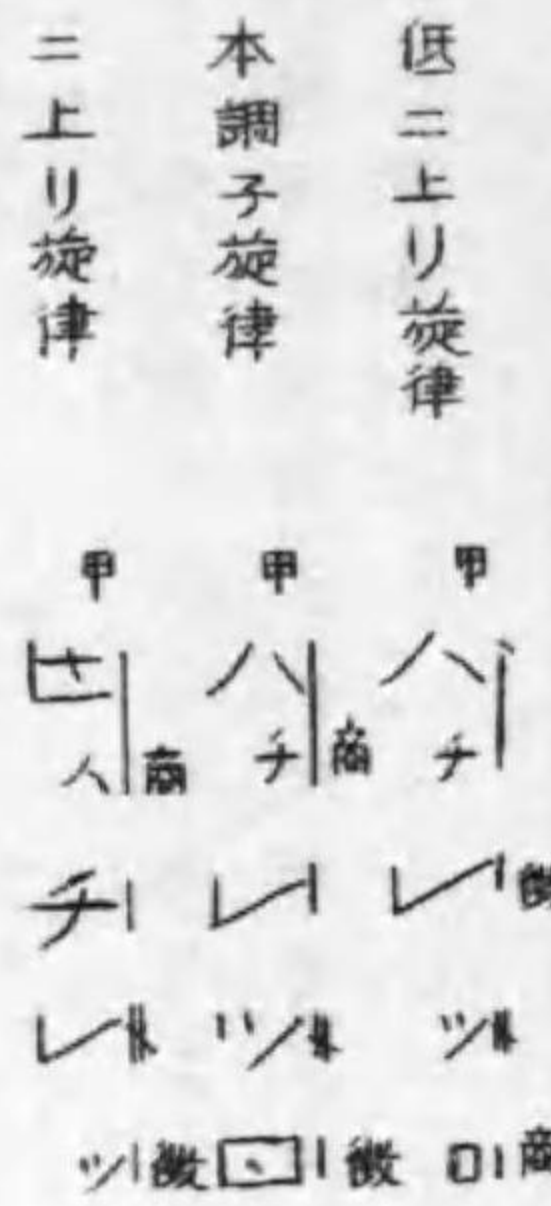 低二上リ旋律 甲 ハ チ レ ツ ロ 商
本調子旋律 甲 ハ チ 商 レ ツ 徴
二上リ旋律 甲 商 チ レ ツ 徴